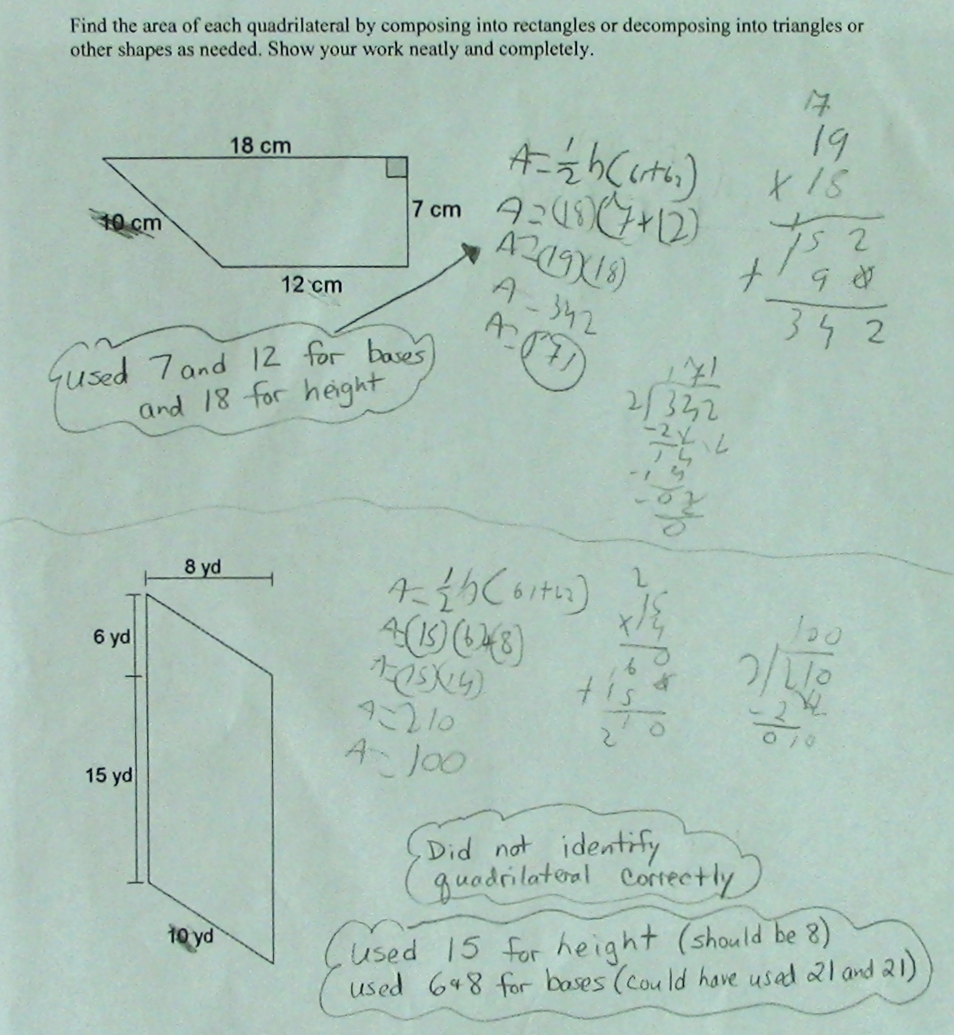 Find the area of each quadrilateral by composing into rectangles or decomposing into triangles or
other shapes as needed. Show your work neatly and completely.
18 cm
10 cm
7 cm
12 cm
A=½h(b1+b2)
A=(18)(7+12)
A=(19)(18)
A=342
A=171
17
19
x 18
152
+ 9
342
171
2)342
-2
14
-14
-02
0
used 7 and 12 for bases
and 18 for height
8 yd
6 yd
15 yd
10 yd
A=½h(b1+b2)
A=(15)(6+8)
A=(15)(14)
A=210
A=100
2
15
x 4
60
+15
210
100
2)210
-2
010
Did not identify
quadrilateral correctly
used 15 for height (should be 8)
used 6&8 for bases (could have used 21 and 21)